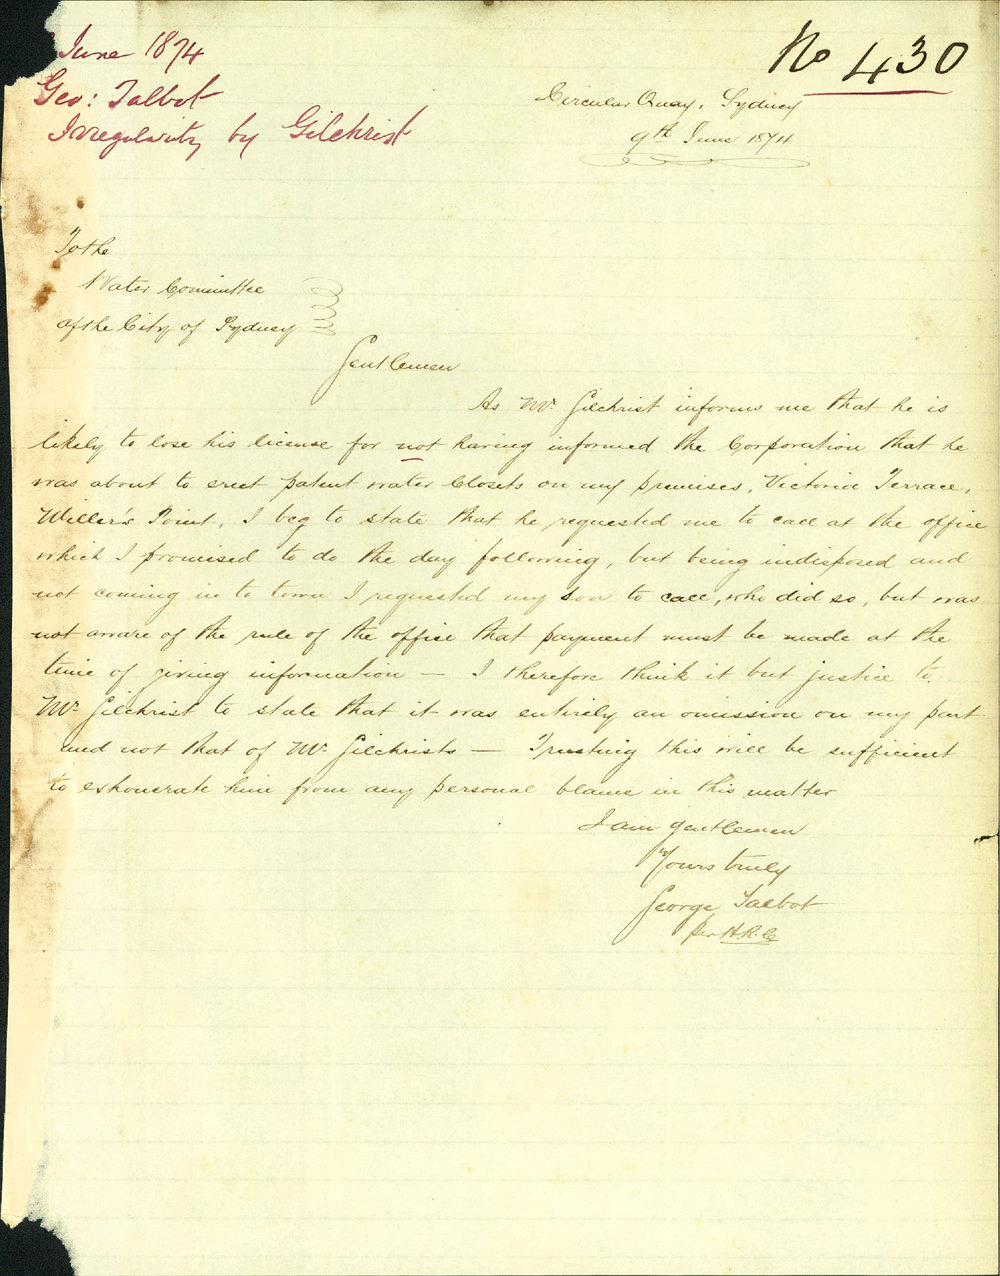 June 1874
Geo: Talbot
Irregularity by Gilchrist
No 430
Circular Quay, Sydney
9th June 1874
To the
Water Committee
of the City of Sydney
Gentlemen
As Mr. Gilchrist informs me that he is
likely to lose his license for not having informed the Corporation that he
was about to erect patent water Closets on my premises, Victoria Terrace,
Miller's Point, I beg to state that he requested me to call at the office
which I promised to do the day following, but being indisposed and
not coming in to town I requested my son to call, who did so, but was
not aware of the rule of the office that payment must be made at the
time of giving information — I therefore think it but justice to
Mr. Gilchrist to state that it was entirely an omission on my part
and not that of Mr. Gilchrists — Trusting this will be sufficient
to exhonerate him from any personal blame in this matter
I am gentlemen
Yours truly
George Talbot
per H.R.C